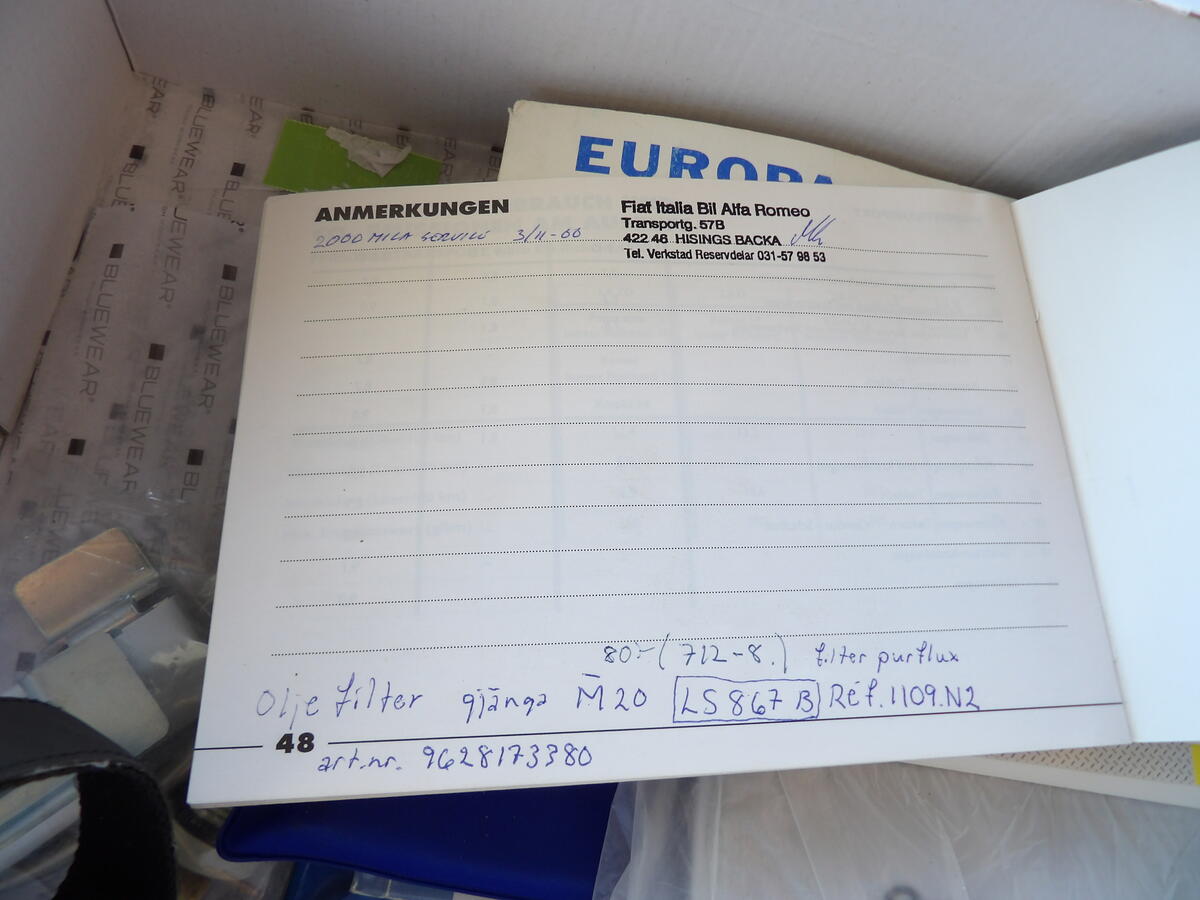 EUROPA
ANMERKUNGEN
2000 MILA SERVICE 3/11-00
Fiat Italia Bil Alfa Romeo
Transportg. 57B
422 46 HISINGS BACKA
Tel. Verkstad Reservdelar 031-57 98 53
80:- (712-8.) filter purflux
Olje filter gjänga M20 LS 867 B Réf. 1109.N2
48
art.nr. 9628173380
BLUEWEAR
BLUEWEAR
BLUEWEAR
BLUEWEAR